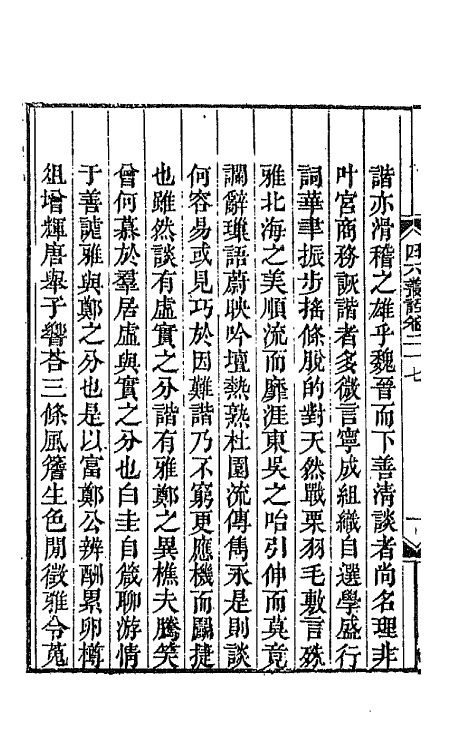 四六叢話卷二十七
諧亦滑稽之雄乎魏晉而下善清談者尚名理非
叶宮商務詼諧者多微言寧成組織自選學盛行
詞華聿振步搖條脫的對天然戰栗羽毛敷言殊
雅北海之美順流而靡涯東吳之咍引伸而莫竟
讕辭璅語蔚映吟壇熱熟杜園流傳雋永是則談
何容易或見巧於因難諧乃不窮更應機而鬬捷
也雖然談有虛實之分諧有雅鄭之異樵夫騰笑
曾何慕於羣居虛與實之分也白圭自箴聊游情
于善謔雅與鄭之分也是以富鄭公辨酬累卵樽
俎增輝唐舉子響荅三條風簷生色閒徵雅令蒐